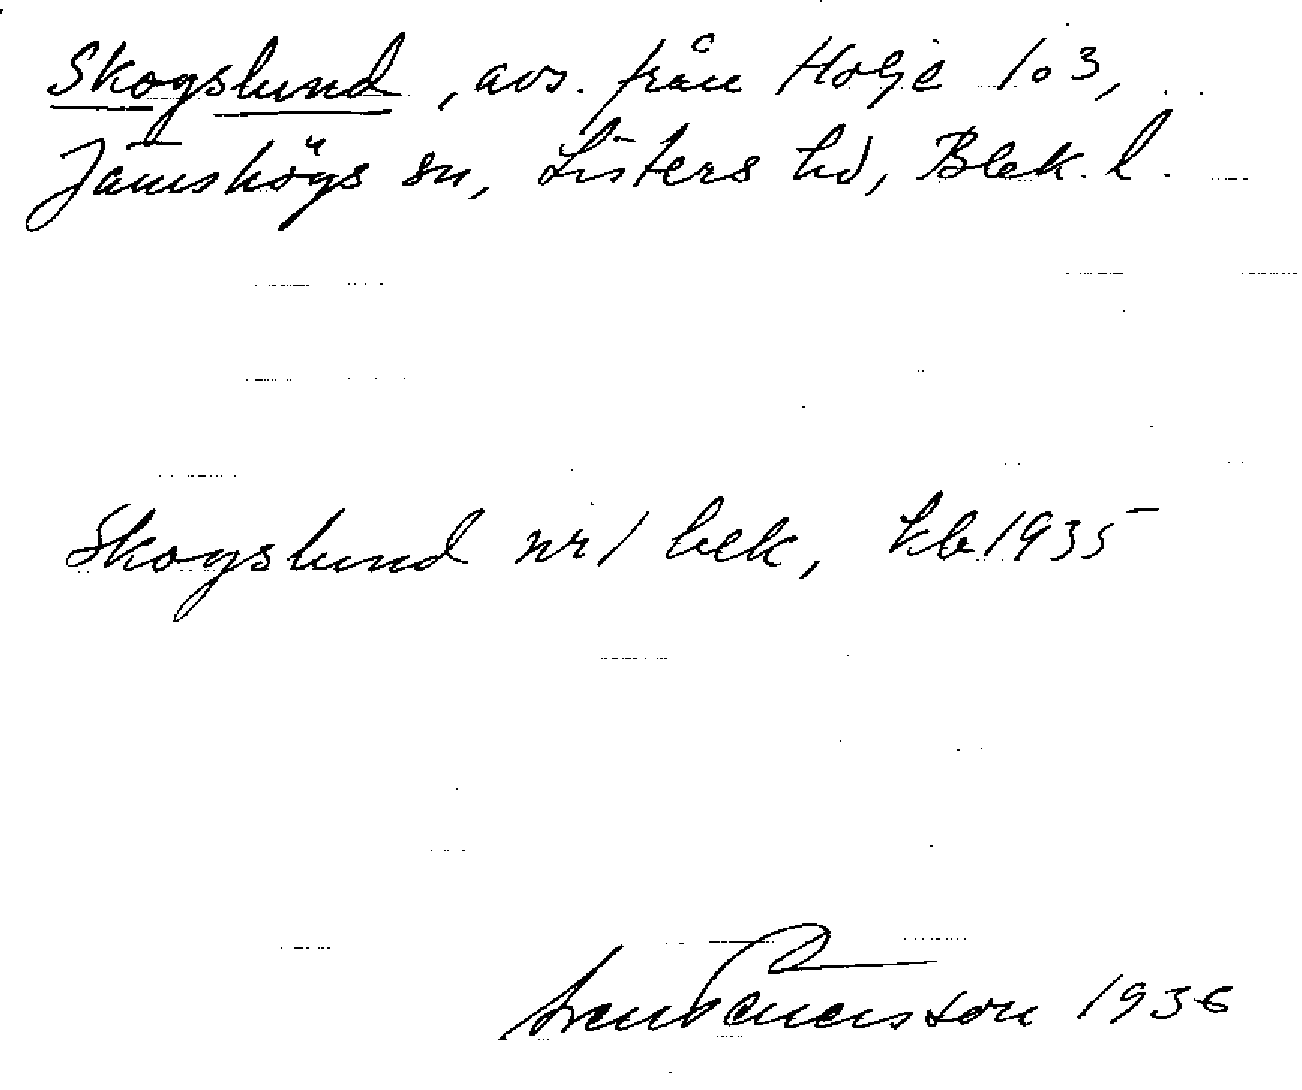 Skogslund, avs. från Holje 103,
Jämshögs sn, Listers hd, Blek. l.
Skogslund nr 1 bek, kb 1935
1936